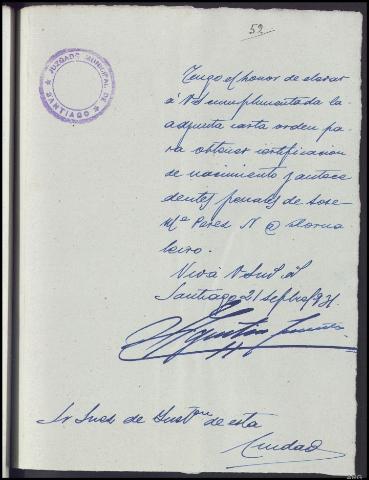 52
JUZGADO MUNICIPAL DE
SANTIAGO
Tengo el honor de elevar
á VS cumplimentada la
adjunta carta orden pa
ra obtener certificacion
de nacimiento y antece
dentes penales de Jose
Mª Perez N @ Jorna
leiro.
Viva V
Santiago 21
Agustin
Sr Juez de Instºⁿ de esta
Ciudad